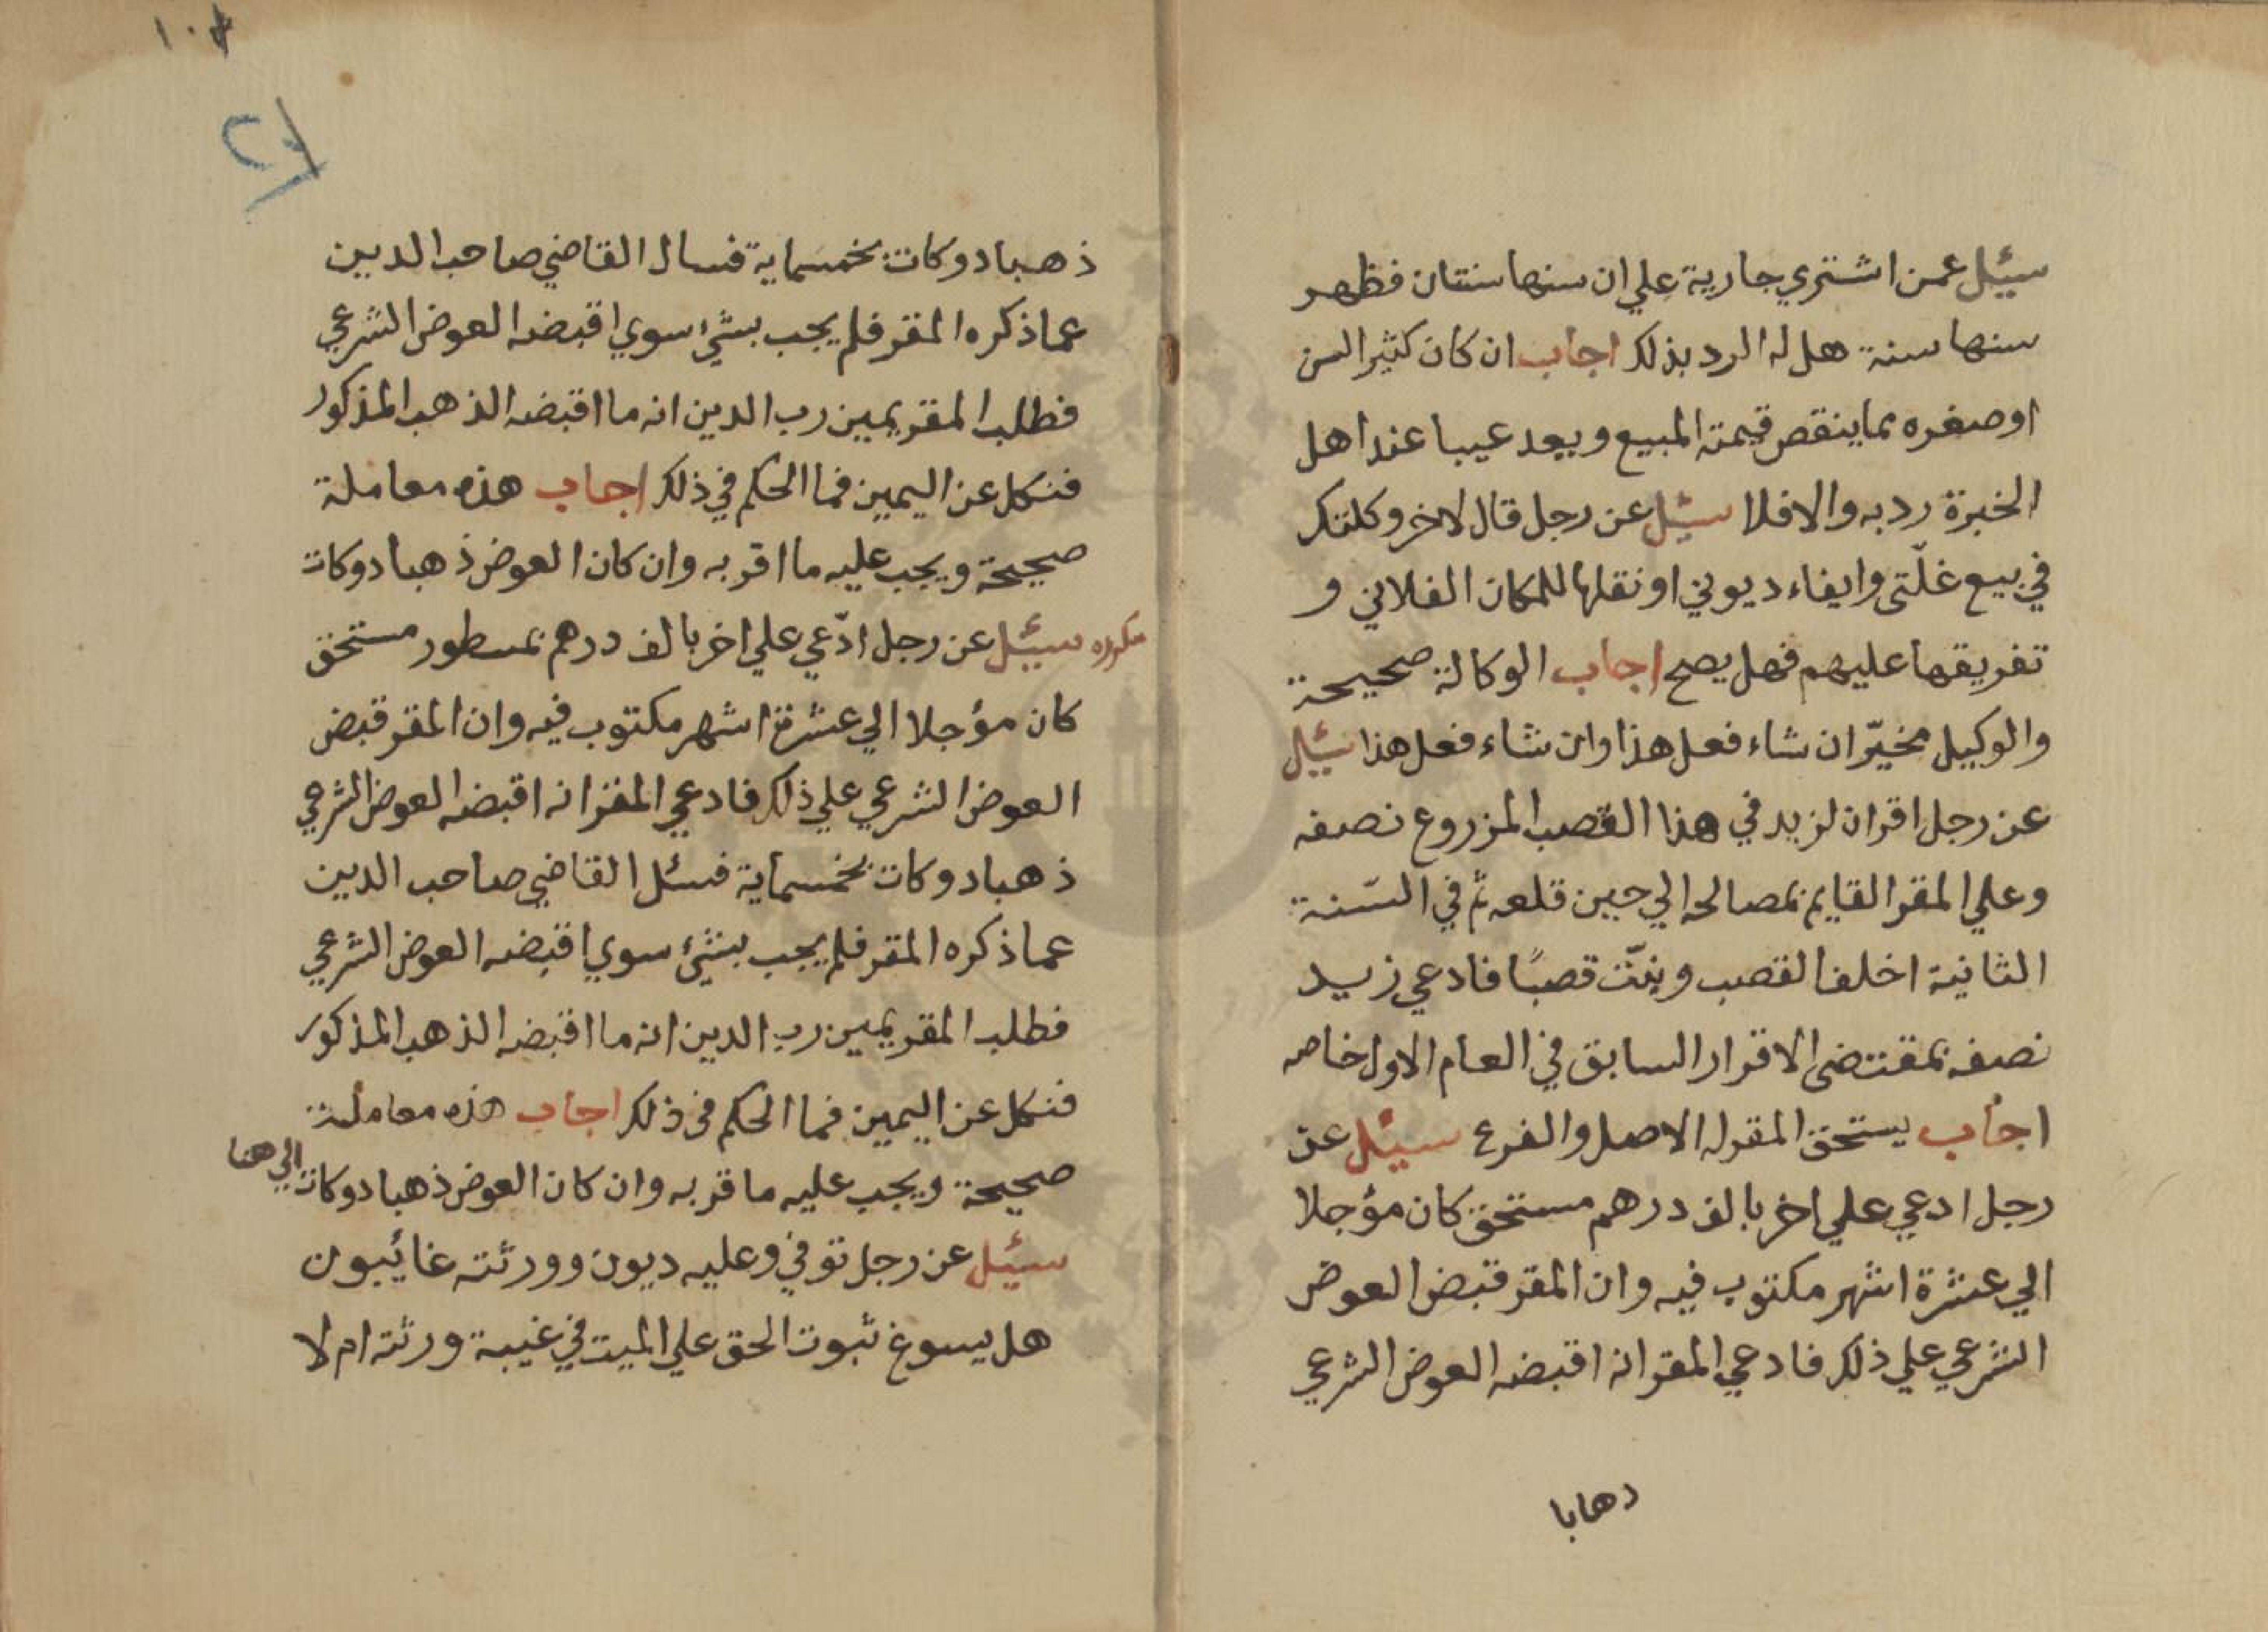 سئيل عمن اشتري جارية علي ان سنها سنتان فظهر
سنها سنة هل له الرد بذلك اجاب ان كان كثير السن
او صغره مما ينقص قيمة المبيع ويعد عيبا عند اهل
الخبرة رد به والا فلا سئيل عن رجل قال لاخر وكلتك
في بيع غلّتى وايفاء ديوني او نقلها للمكان الفلاني و
تفريقها عليهم فهل يصح اجاب الوكالة صحيحة
والوكيل مخيّر ان شاء فعل هذا وان شاء فعل هذا سئيل
عن رجل اقر ان لزيد في هذا القصب المزروع نصفه
وعلي المقر القايم بمصالحه الي حين قلعه ثم في السّنة
الثانية اخلف القصب وبنّت قصبًا فادعي زيد
نصفه بمقتضى الاقرار السابق في العام الاول خاصه
اجاب يستحق المقرله الاصل والفرع سئيل عن
رجل ادعي علي اخر بالف درهم مستحق كان مؤجلا
الي عشرة اشهر مكتوب فيه وان المقر قبض العوض
الشرعي علي ذلك فادعي المقر انه اقبضه العوض الشرعي
دهابا
١٠٤
ذهبا دوكات بخمسماية فسال القاضي صاحب الدين
عما ذكره المقر فلم يجب بشئ سوي اقبضه العوض الشرعي
فطلب المقر يمين رب الدين انه ما اقبضه الذهب المذكور
فنكل عن اليمين فما الحكم في ذلك اجاب هذه معاملة
صحيحة ويجب عليه ما اقر به وان كان العوض ذهبا دوكات
مكرره سئيل عن رجل ادّعي علي اخر بالف درهم بمسطور مستحق
كان مؤجلا الي عشرة اشهر مكتوب فيه وان المقر قبض
العوض الشرعي علي ذلك فادعي المقر انه اقبضه العوض الشرعي
ذهبا دوكات بخمسماية فسئل القاضي صاحب الدين
عما ذكره المقر فلم يجب بشئ سوي اقبضه العوض الشرعي
فطلب المقر يمين رب الدين انه ما اقبضه الذهب المذكور
فنكل عن اليمين فما الحكم في ذلك اجاب هذه معاملة
صحيحة ويجب عليه ما قر به وان كان العوض ذهبا دوكات الي هنا
سئيل عن رجل توفي وعليه ديون وورثته غائيبون
هل يسوغ ثبوت الحق علي الميت في غيبة ورثته ام لا